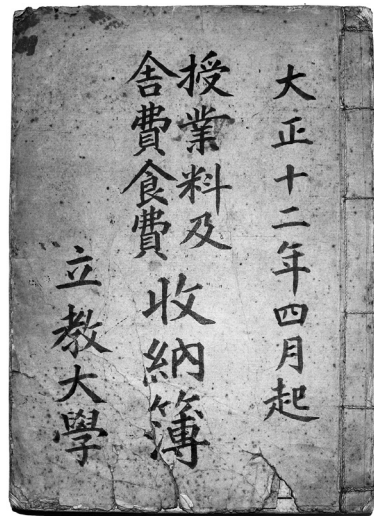 大正十二年四月起
授業料及
舎費食費
收納簿
立教大學